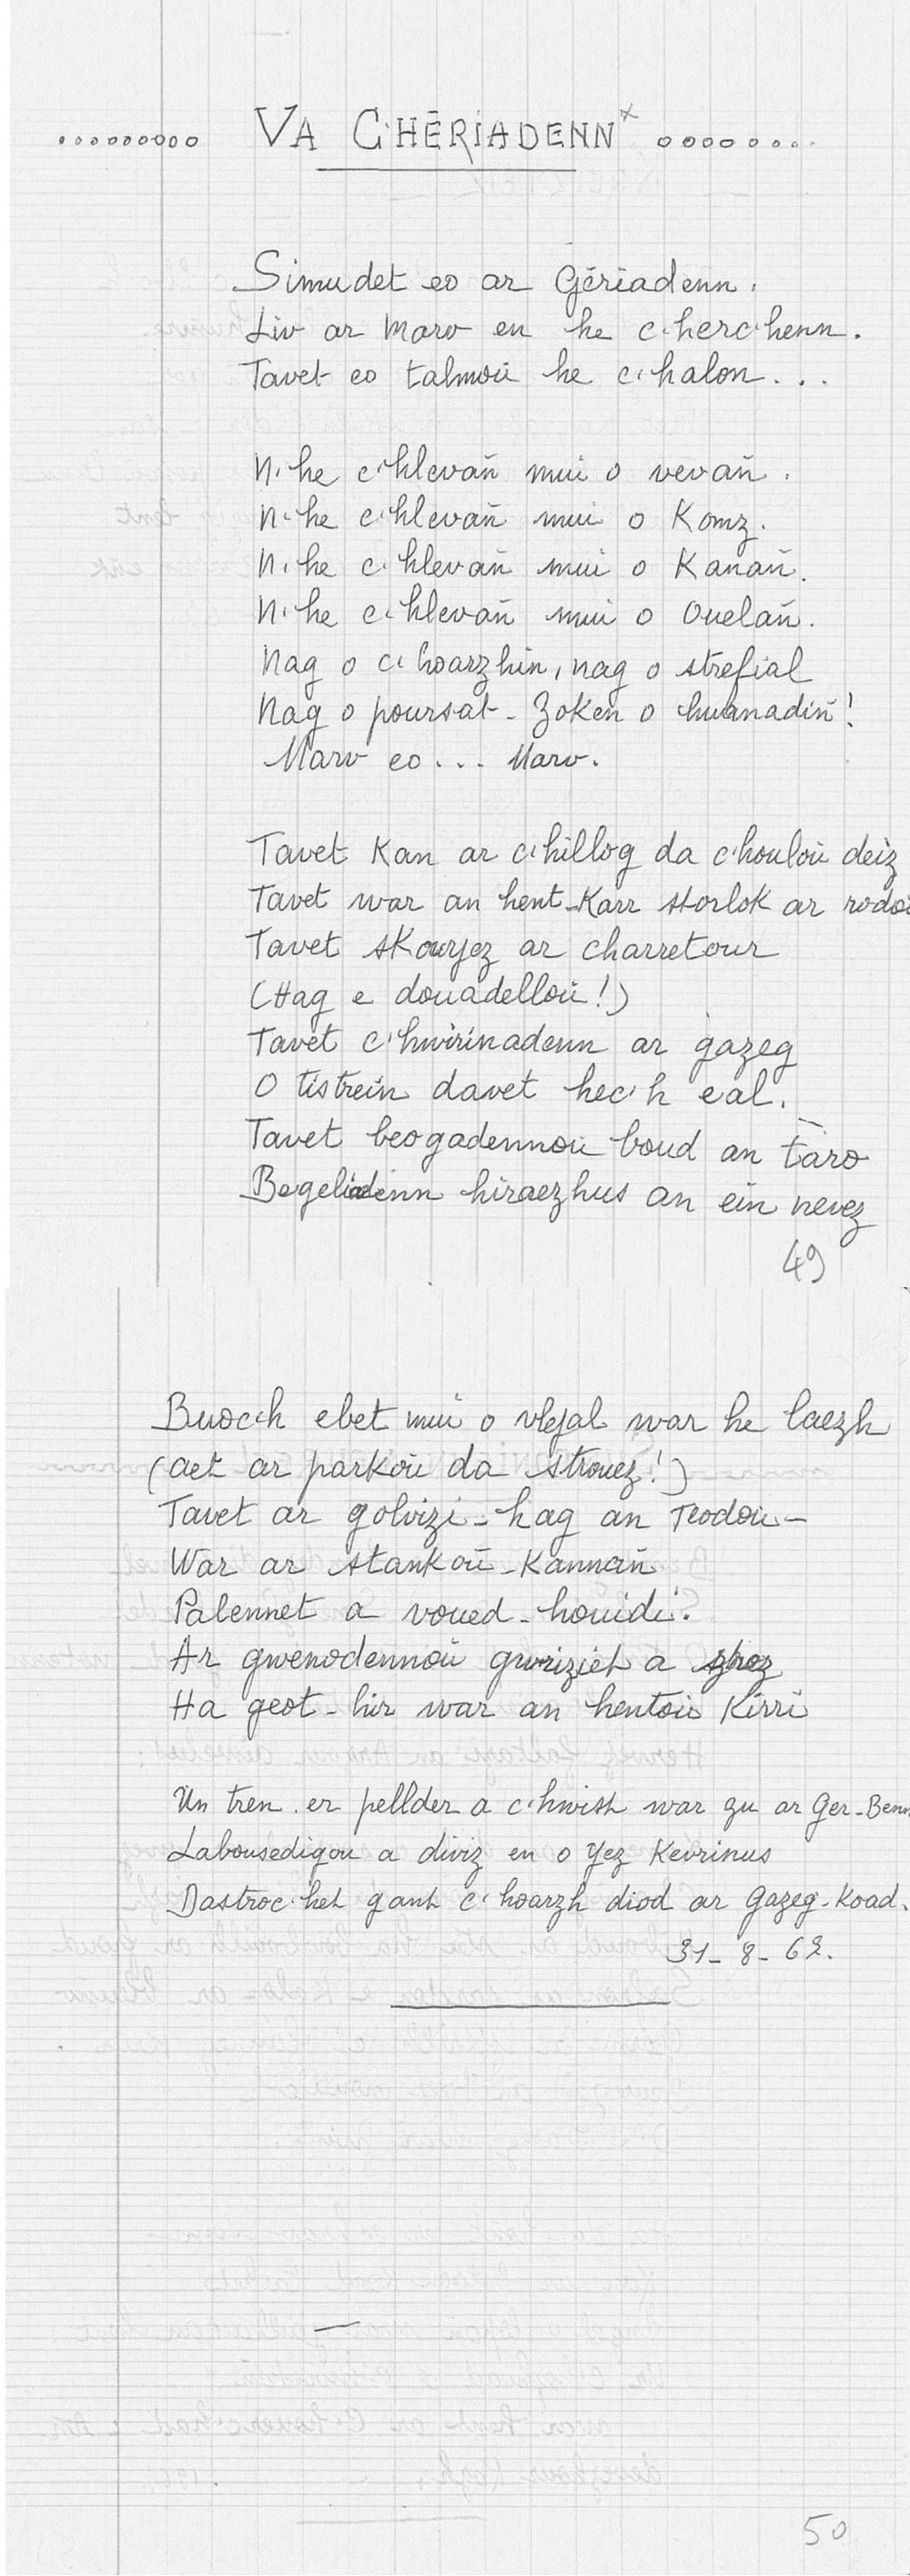 ......... VA C'HÊRIADENN x ........
Simudet eo ar Gériadenn.
Liv ar Maro en he c'herc'henn.
Tavet eo talmoù he c'halon...
N'he c'hlevañ mui o vevañ.
N'he c'hlevañ mui o Komz.
N'he c'hlevañ mui o Kanañ.
N'he c'hlevañ mui o Ouelañ.
Nag o c'hoarzhin, nag o strefial
Nag o poursat - Zoken o huanadiñ!
Marv eo... Marv.
Tavet Kan ar c'hillog da c'houloù deiz
Tavet war an hent-Karr storlok ar
Tavet skourjez ar charretour
(Hag e douadelloù!)
Tavet c'hwirinadenn ar gazeg
O tistreiñ davet hec'h eal.
Tavet beogadennoù boud an taro
Begeliadenn hiraezhus an ein nevez
49
Buoc'h ebet mui o vlejal war he laezh
(aet ar parkoù da strouez!)
Tavet ar golvizi - hag an Teodoù -
War ar stankoù - Kannañ
Palennet a voued - houidi.
Ar gwenodennoù gwriziet a
Ha geot - hir war an hentoù Kirri
Un tren er pellder a c'hwist war zu ar Ger-Benn
Labousedigou a diviz en o yez Kevrinus
Dastroc'het gant c'hoarzh diod ar Gazeg-Koad.
31-8-62.
50